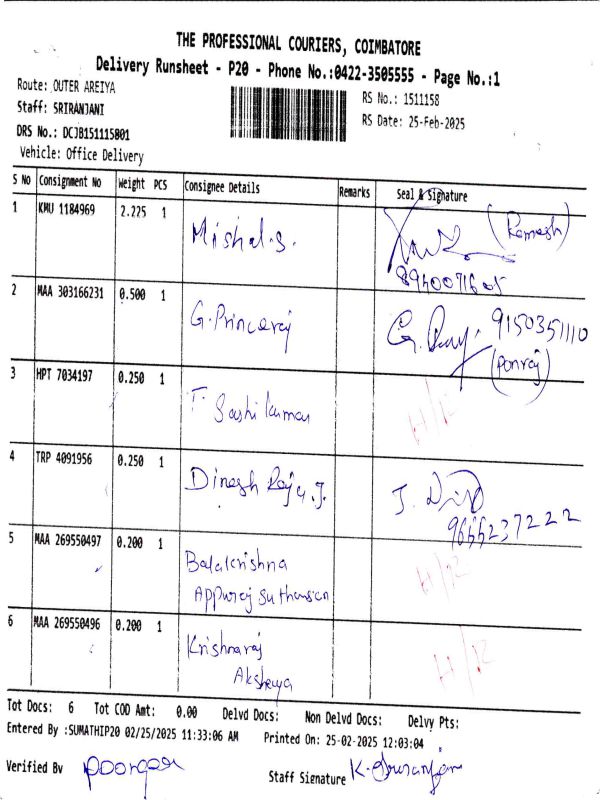 THE PROFESSIONAL COURIERS, COIMBATORE
Delivery Runsheet - P20 - Phone No.:0422-3505555 - Page No.:1
Route: OUTER AREIYA
RS No.: 1511158
Staff: SRIRANJANI
RS Date: 25-Feb-2025
DRS No.: DCJB151115801
Vehicle: Office Delivery
S No Consignment No Weight PCS Consignee Details Remarks Seal & Signature
1 KMU 1184969 2.225 1 Mishal.S. (Ramesh)
8940071605
2 MAA 303166231 0.500 1 G.Princeraj 9150351110
(Ponraj)
3 HPT 7034197 0.250 1 T. Sashi kumar
4 TRP 4091956 0.250 1 Dinesh Raja.J.
9666237222
5 MAA 269550497 0.200 1 Balakrishna
Appuraj Suthansan
6 MAA 269550496 0.200 1 Krishnaraj
Akshaya
Tot Docs: 6 Tot COD Amt: 0.00 Delvd Docs: Non Delvd Docs: Delvy Pts:
Entered By :SUMATHIP20 02/25/2025 11:33:06 AM Printed On: 25-02-2025 12:03:04
Verified By
Staff Signature